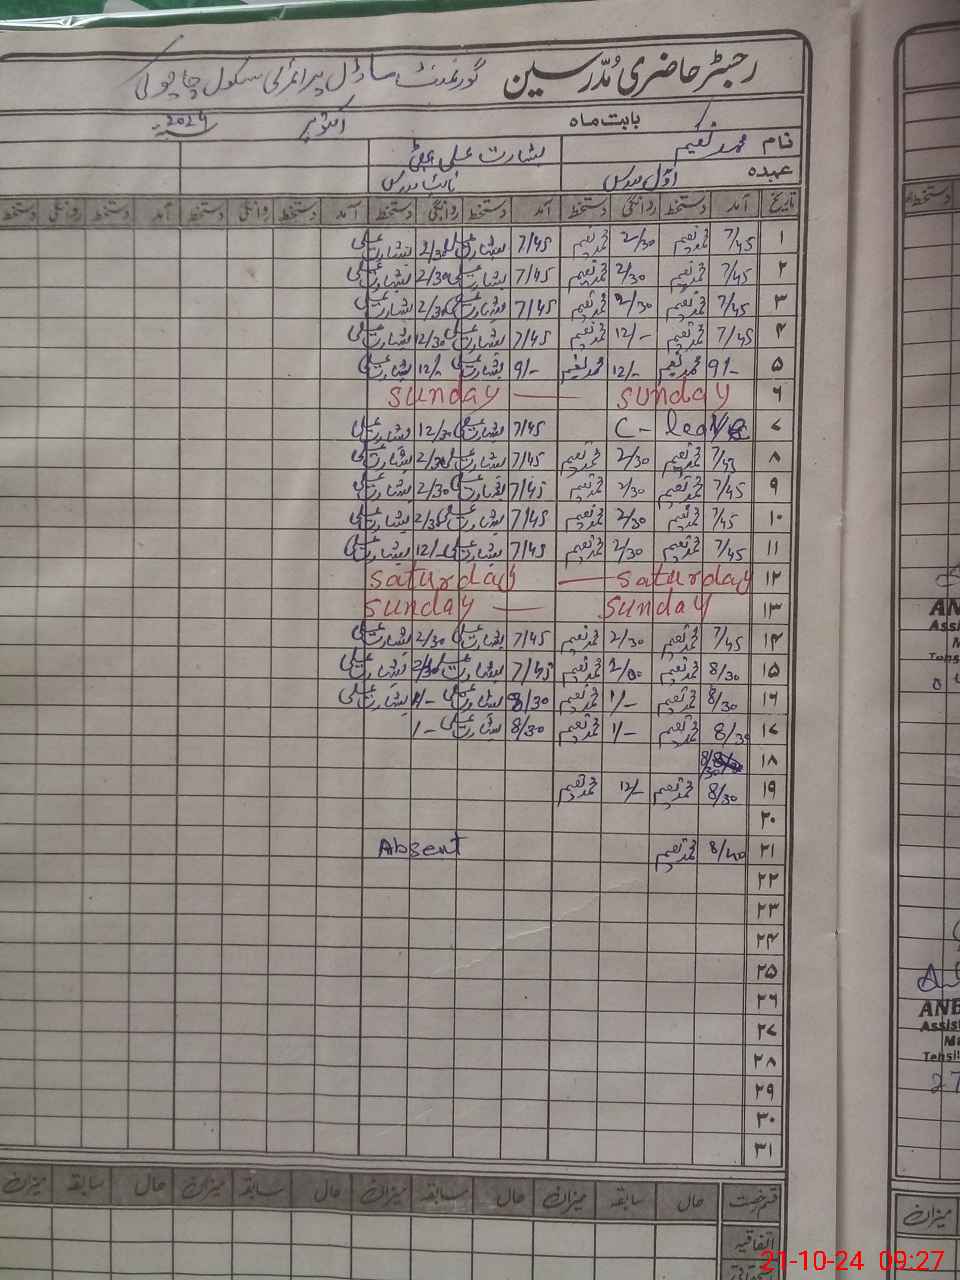 رجسٹر حاضری مُدّرسین گورنمنٹ ماڈل پرائمری سکول
بابت ماہ اکتوبر 2024ء
نام محمد نعیم بشارت علی
عہدہ اوّل مدرس نائب مدرس
تاریخ آمد دستخط روانگی دستخط آمد دستخط روانگی دستخط آمد دستخط روانگی دستخط آمد دستخط روانگی دستخط
۱ 7/45 محمد نعیم 2/30 محمد نعیم 7/45 بشارت علی 2/30 بشارت علی
۲ 7/45 محمد نعیم 2/30 محمد نعیم 7/45 بشارت علی 2/30 بشارت علی
۳ 7/45 محمد نعیم 2/30 محمد نعیم 7/45 بشارت علی 2/30 بشارت علی
۴ 7/45 محمد نعیم 12/- محمد نعیم 7/45 بشارت علی 12/30 بشارت علی
۵ 9/- محمد نعیم 12/- محمد نعیم 9/- بشارت علی 12/- بشارت علی
۶ sunday — sunday
۷ C- leave 7/45 بشارت علی 12/30 بشارت علی
۸ 7/45 محمد نعیم 2/30 محمد نعیم 7/45 بشارت علی 2/30 بشارت علی
۹ 7/45 محمد نعیم 2/30 محمد نعیم 7/45 بشارت علی 2/30 بشارت علی
۱۰ 7/45 محمد نعیم 2/30 محمد نعیم 7/45 بشارت علی 2/30 بشارت علی
۱۱ 7/45 محمد نعیم 2/30 محمد نعیم 7/45 بشارت علی 12/- بشارت علی
۱۲ saturday — saturday
۱۳ sunday — sunday
۱۴ 7/45 محمد نعیم 2/30 محمد نعیم 7/45 بشارت علی 2/30 بشارت علی
۱۵ 8/30 محمد نعیم 1/00 محمد نعیم 7/45 بشارت علی 2/30 بشارت علی
۱۶ 8/30 محمد نعیم 1/- محمد نعیم 8/30 بشارت علی 1/- بشارت علی
۱۷ 8/30 محمد نعیم 1/- محمد نعیم 8/30 بشارت علی 1/-
۱۸ 8/30
۱۹ 8/30 محمد نعیم 12/- محمد نعیم
۲۰
۲۱ 8/40 محمد نعیم Absent
۲۲
۲۳
۲۴
۲۵
۲۶
۲۷
۲۸
۲۹
۳۰
۳۱
قسم رخصت حال سابقہ میزان حال سابقہ میزان حال سابقہ میزان حال سابقہ میزان
اتفاقیہ
میزان
21-10-24 09:27